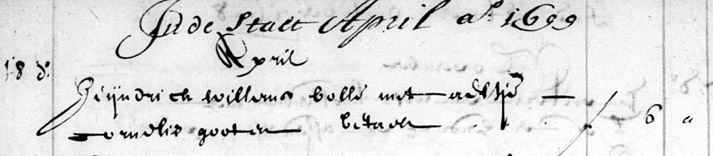 In de Stadt April a° 1699
April
18 d°
Heijndrick willems bolle met aeltje
Cornelis gooten betaelt f 6 "